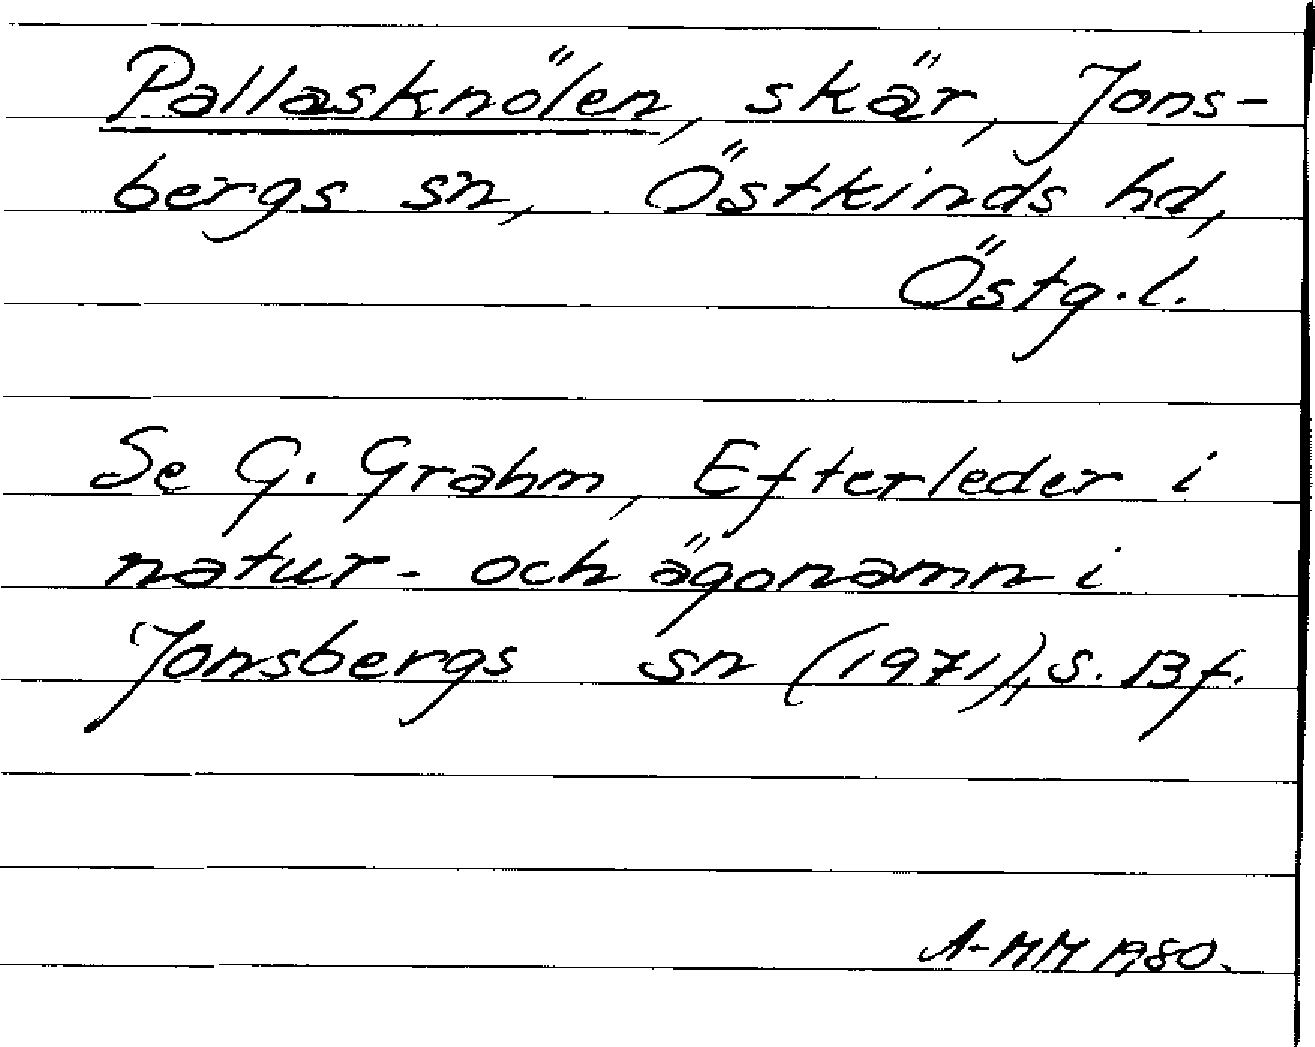 Pallasknölen, skär, Jons-
bergs sn, Östkinds hd,
Östg.l.
Se G. Grahm, Efterleder i
natur- och ägonamn i
Jonsbergs sn (1971), s. 13 f.
A-MM 1980.